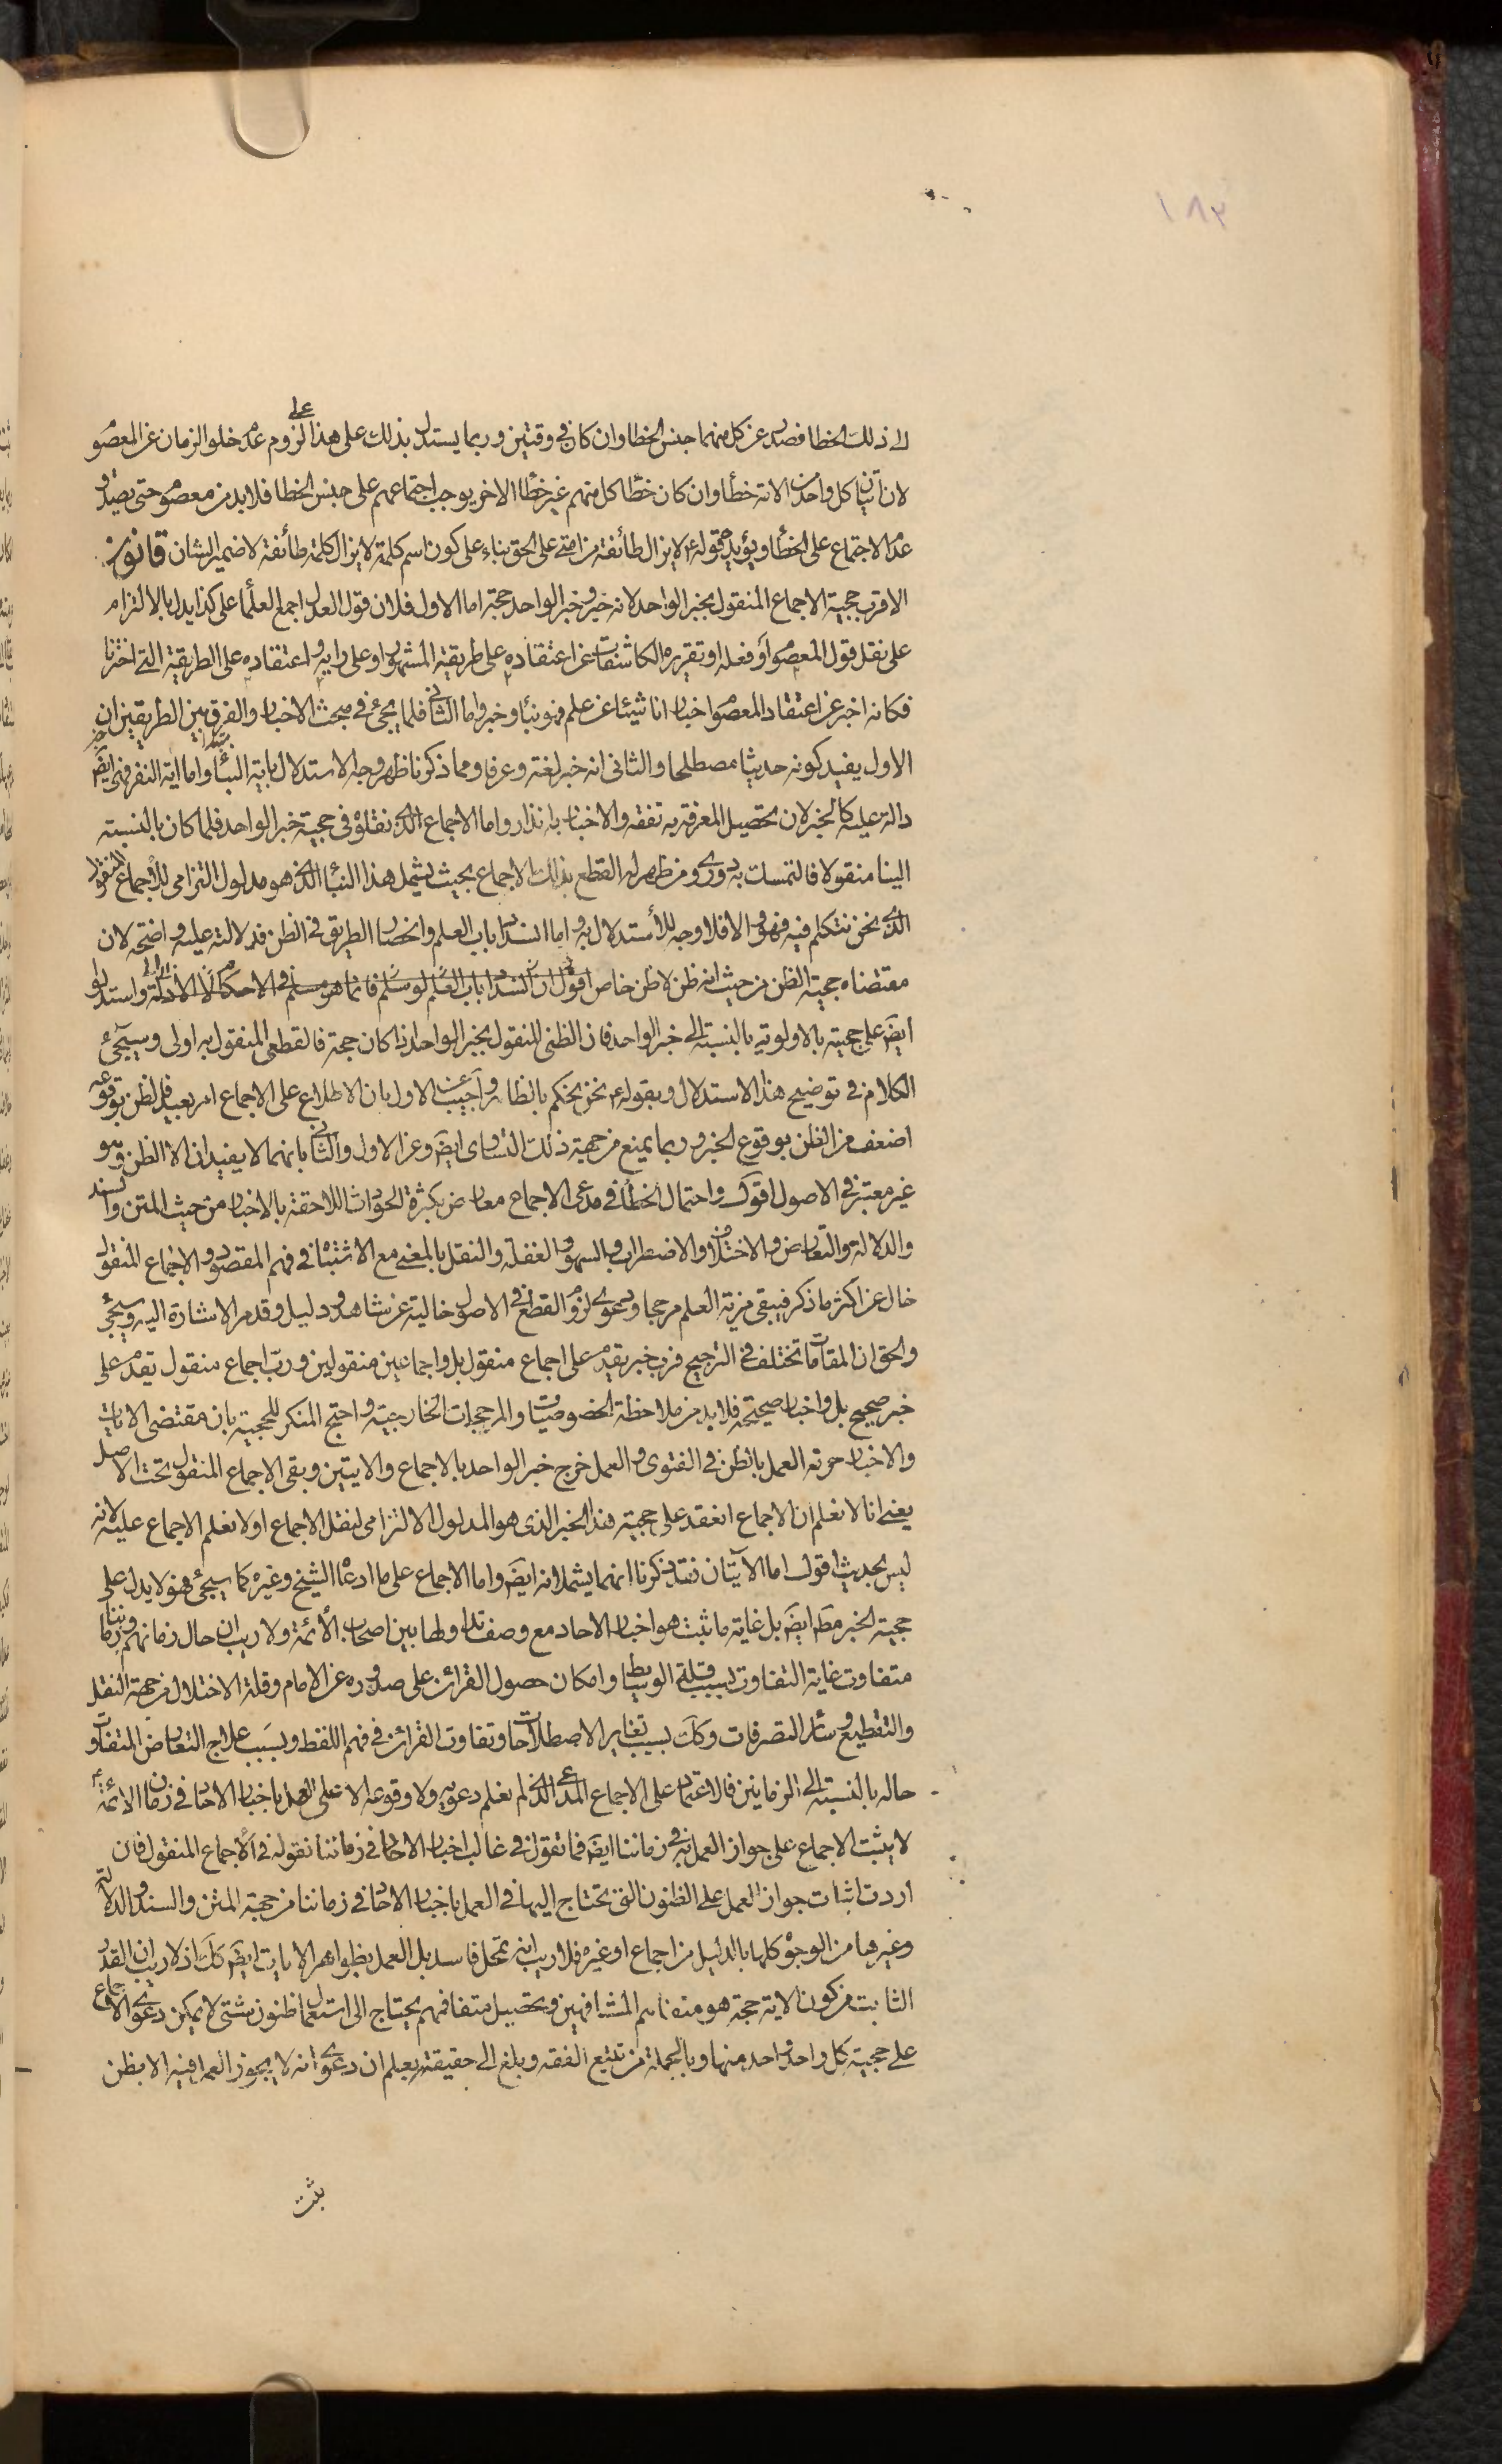 ١٨٢
الى ذلك الخطا فصدر عن كل منهما جنس الخطا وان كان فى وقتين وربما يستدل بذلك على هذا على لزوم عدم خلو الزمان عن المعصوم
لان اتيان كل واحد من الامة خطأ وان كان خطا كل منهم غير خطا الاخر يوجب اجتماعهم على جنس الخطا فلا بد من معصوم حتى يصدق
عدم الاجتماع على الخطأ ويؤيده قوله ع لا يزال طائفة من امتى على الحق بناء على كون اسم كلمة لا يزال كلمة طائفة لا ضمير الشان قانون
الاقرب حجية الاجماع المنقول بخبر الواحد لانه خبر وخبر الواحد حجة اما الاول فلان قول العدل اجمع العلماء على كذا يدل بالالتزام
على نقل قول المعصوم او فعله او تقريره الكاشفات عن اعتقاده على طريقة المشهور او على رايه واعتقاده على الطريقة التى اخترنا
فكانه اخبر عن اعتقاد المعصوم اخبارا ناشيئا عن علم فهو نبأ وخبر واما الثانى فلما يجئ فى مبحث الاخبار والفرق بين الطريقين ان
الاول يفيد كونه حديثا مصطلحا والثانى انه خبر لغة وعرفا ومما ذكرنا ظهر وجه الاستدلال باية النبأ واما اية النفر فهى ايض
دالة عليه كالخبر لان تحصيل المعرفة به تفقه والاخبار به انذار واما الاجماع الذى نقلوه فى حجية خبر الواحد فلما كان بالنسبة
الينا منقولا فالتمسك به دورى ومن ظهر له القطع بذلك الاجماع بحيث يشمل هذا النبأ الذى هو مدلول التزامى للاجماع المنقول
الذى نحن نتكلم فيه فهو والا فلا وجه للاستدلال به واما انسداد باب العلم وانحصار الطريق فى الظن فدلالته عليه واضحة لان
مقتضاه حجية الظن من حيث انه ظن لا ظن خاص اقول ان انسداد باب العلم لو سلم فانما هو مسلم فى الاحكام لا الادلة واستدلوا
ايض على حجيته بالاولوية بالنسبة الى خبر الواحد فان الظنى المنقول بخبر الواحد اذا كان حجة فالقطعى المنقول به اولى وسيجئ
الكلام فى توضيح هذا الاستدلال وبقوله ع نحن نحكم بالظاهر واجيب عن الاول بان الاطلاع على الاجماع امر بعيد فالظن بوقوعه
اضعف من الظن بوقوع الخبر وربما يمنع من جهة ذلك التساوى ايض وعن الاول والثانى بانهما لا يفيدان الا الظن وهو
غير معتبر فى الاصول اقول واحتمال الخطأ فى مدعى الاجماع معارض بكثرة الحوادث اللاحقة بالاخبار من حيث المتن والسند
والدلالة والتعارض والاختلاف والاضطراب والسهو والغفلة والنقل بالمعنى مع الاشتباه فى فهم المقصود والاجماع المنقول
خال عن اكثر ما ذكر فيبقى مزية العلم مرجحا ودعوى لزوم القطع فى الاصول خالية عن شاهد ودليل وقد مر الاشارة اليه وسيجئ
والحق ان المقامات تختلف فى الترجيح فرب خبر يقدم على اجماع منقول بل واجماعين منقولين ورب اجماع منقول يقدم على
خبر صحيح بل واخبار صحيحة فلا بد من ملاحظة الخصوصيات والمرجحات الخارجية واحتج المنكر للحجية بان مقتضى الايات
والاخبار حرمة العمل بالظن فى الفتوى والعمل خرج خبر الواحد بالاجماع والايتين وبقى الاجماع المنقول تحت الاصل
يعنى انا لا نعلم ان الاجماع انعقد على حجية هذا الخبر الذى هو المدلول الالتزامى لنقل الاجماع او لا نعلم الاجماع عليه لانه
ليس بحديث اقول اما الآيتان فقد ذكرنا انهما يشملانه ايض واما الاجماع على ما ادعاه الشيخ وغيره كما سيجئ فهو لا يدل على
حجية الخبر مط ايض بل غاية ما ثبت هو اخبار الاحاد مع وصف تداولها بين اصحاب الأئمة ولا ريب ان حال زمانهم وزماننا
متفاوت غاية التفاوت بسبب قلة الوسايط وامكان حصول القرائن على صدوره عن الامام وقلة الاختلال من جهة النقل
والتقطيع وسائر التصرفات وكك بسبب تغاير الاصطلاحات وتفاوت القرائن فى فهم اللفظ وبسبب علاج التعارض المتفاوت
حاله بالنسبة الى الزمانين فالاعتماد على الاجماع المدعى الذى لم نعلم دعويه ولا وقوعه الا على العمل باخبار الاحاد فى زمان الائمة ع
لا يثبت الاجماع على جواز العمل به فى زماننا ايض فما تقول فى غالب اخبار الاحاد فى زماننا نقوله فى الاجماع المنقول فان
اردت اثبات جواز العمل على الظنون التى تحتاج اليها فى العمل باخبار الاحاد فى زماننا من جهة المتن والسند والدلالة
وغيرها من الوجوه كلها بالدليل من اجماع او غيره فلا ريب انه تمحل فاسد بل العمل بظواهر الايات ايض كك اذ لا ريب ان القدر
الثابت من كون الاية حجة هو متفاهم المشافهين وتحصيل متفاهمهم يحتاج الى استعمال ظنون شتى لا يمكن دعوى الاجماع
على حجية كل واحد واحد منها وبالجملة من تتبع الفقه وبلغ الى حقيقته يعلم ان دعوى انه لا يجوز العمل فيه الا بظن
يثبت